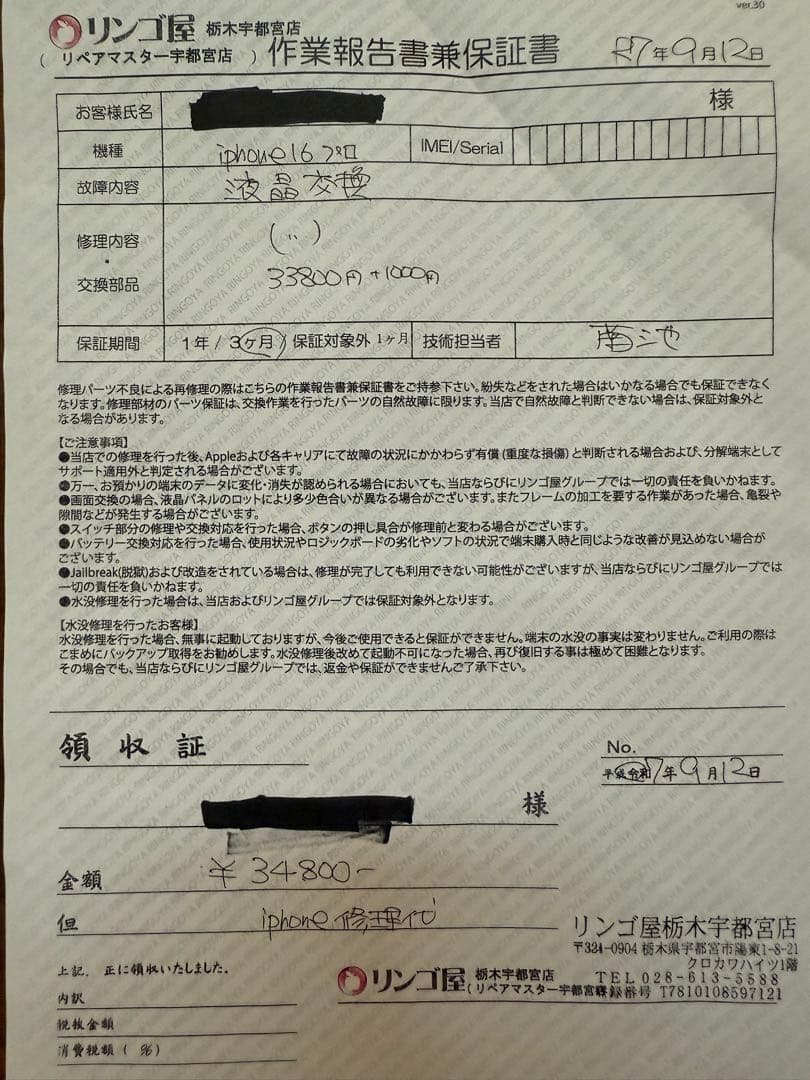 ver.30
リンゴ屋 栃木宇都宮店
( リペアマスター宇都宮店 ) 作業報告書兼保証書 R7年9月12日
お客様氏名 様
機種 iphone16プロ IMEI/Serial
故障内容 液晶交換
修理内容 ( 〃 )
・
交換部品 33800円+1000円
保証期間 1年/3ヶ月/保証対象外 1ヶ月 技術担当者
修理パーツ不良による再修理の際はこちらの作業報告書兼保証書をご持参下さい。紛失などをされた場合はいかなる場合でも保証できなく
なります。修理部材のパーツ保証は、交換作業を行ったパーツの自然故障に限ります。当店で自然故障と判断できない場合は、保証対象外と
なる場合があります。
【ご注意事項】
●当店での修理を行った後、Appleおよび各キャリアにて故障の状況にかかわらず有償(重度な損傷)と判断される場合および、分解端末として
サポート適用外と判定される場合がございます。
●万一、お預かりの端末のデータに変化・消失が認められる場合においても、当店ならびにリンゴ屋グループでは一切の責任を負いかねます。
●画面交換の場合、液晶パネルのロットにより多少色合いが異なる場合がございます。またフレームの加工を要する作業があった場合、亀裂や
隙間などが発生する場合がございます。
●スイッチ部分の修理や交換対応を行った場合、ボタンの押し具合が修理前と変わる場合がございます。
●バッテリー交換対応を行った場合、使用状況やロジックボードの劣化やソフトの状況で端末購入時と同じような改善が見込めない場合が
ございます。
●Jailbreak(脱獄)および改造をされている場合は、修理が完了しても利用できない可能性がございますが、当店ならびにリンゴ屋グループでは
一切の責任を負いかねます。
●水没修理を行った場合は、当店およびリンゴ屋グループでは保証対象外となります。
【水没修理を行ったお客様】
水没修理を行った場合、無事に起動しておりますが、今後ご使用できると保証ができません。端末の水没の事実は変わりません。ご利用の際は
こまめにバックアップ取得をお勧めします。水没修理後改めて起動不可になった場合、再び復旧する事は極めて困難となります。
その場合でも、当店ならびにリンゴ屋グループでは、返金や保証ができませんご了承下さい。
領収証 No.
平成 令和 7年9月12日
様
金額 ¥34800-
但 iphone修理代
リンゴ屋栃木宇都宮店
〒321-0904 栃木県宇都宮市陽東1-8-21
クロカワハイツ1階
TEL 028-613-5588
登録番号 T7810108597121
上記、正に領収いたしました。
リンゴ屋 栃木宇都宮店
( リペアマスター宇都宮店
内訳
税抜金額
消費税額( %)